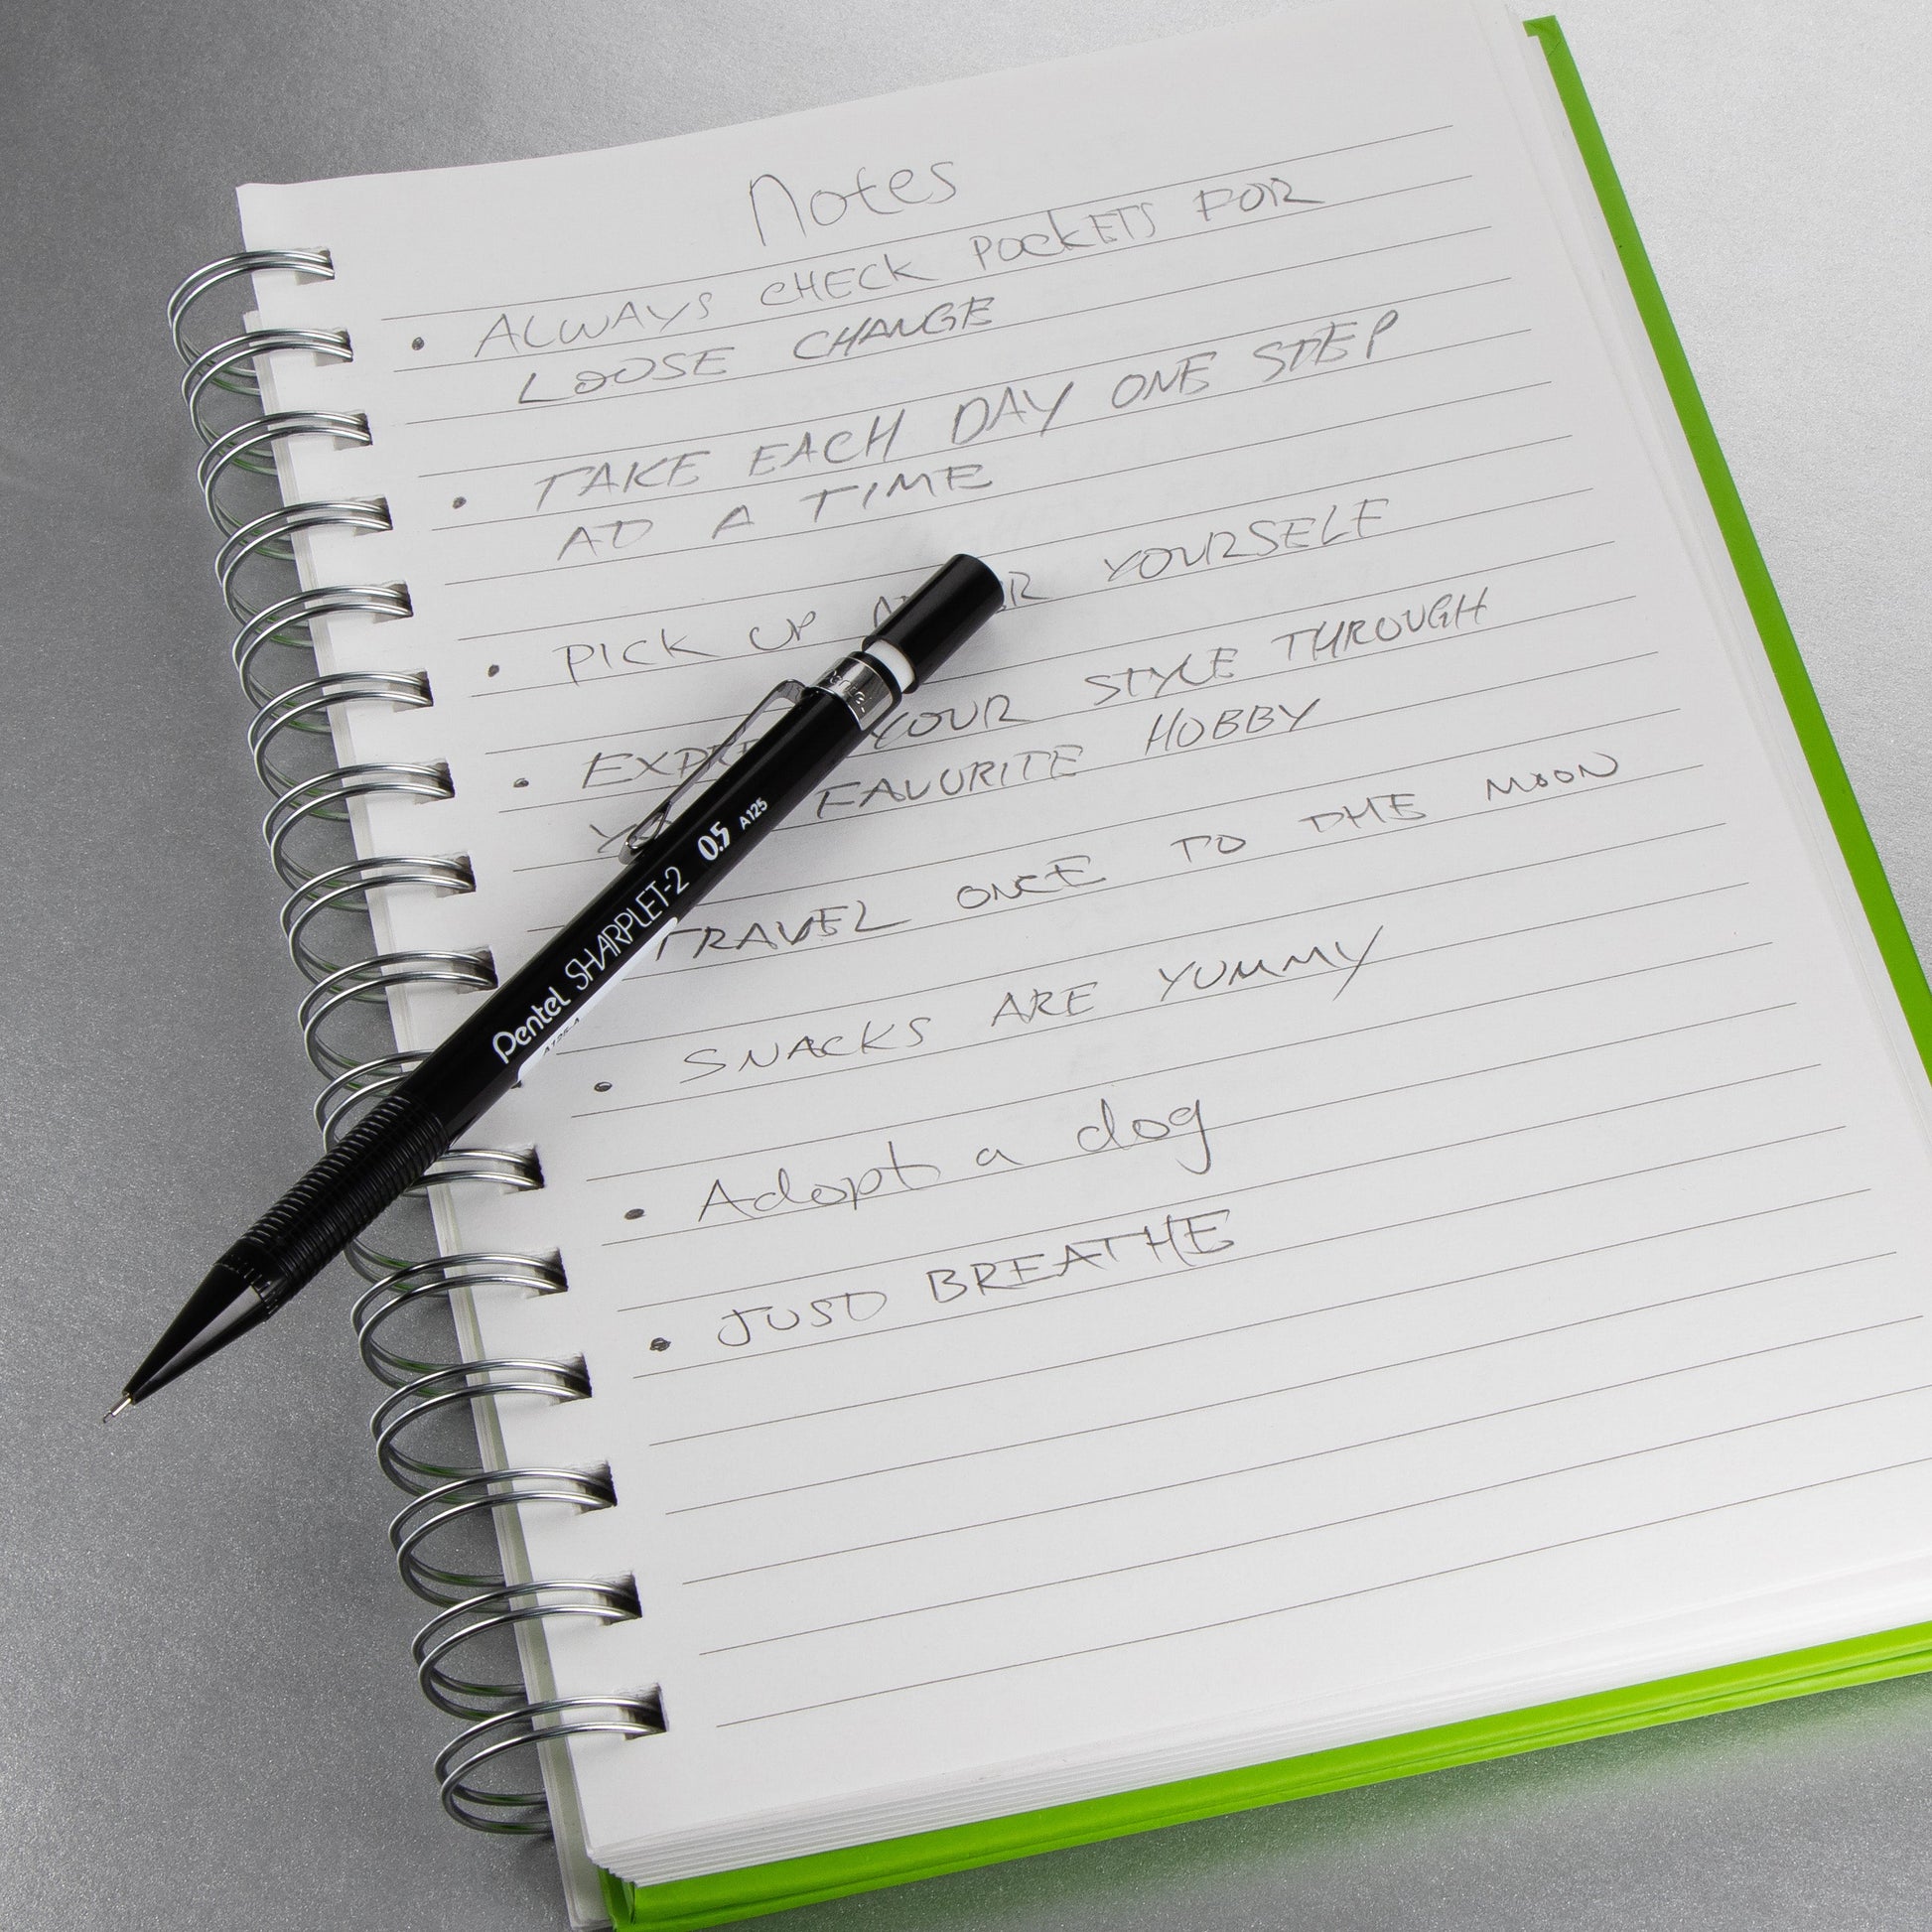 Notes
• ALWAYS CHECK POCKETS FOR
LOOSE CHANGE
• TAKE EACH DAY ONE STEP
AT A TIME
• PICK UP YOURSELF
• YOUR STYLE THROUGH
FAVORITE HOBBY
TRAVEL ONCE TO THE MOON
• SNACKS ARE YUMMY
• Adopt a dog
• JUST BREATHE
Pentel SHARPLET-2 0.5 A125
Pentel